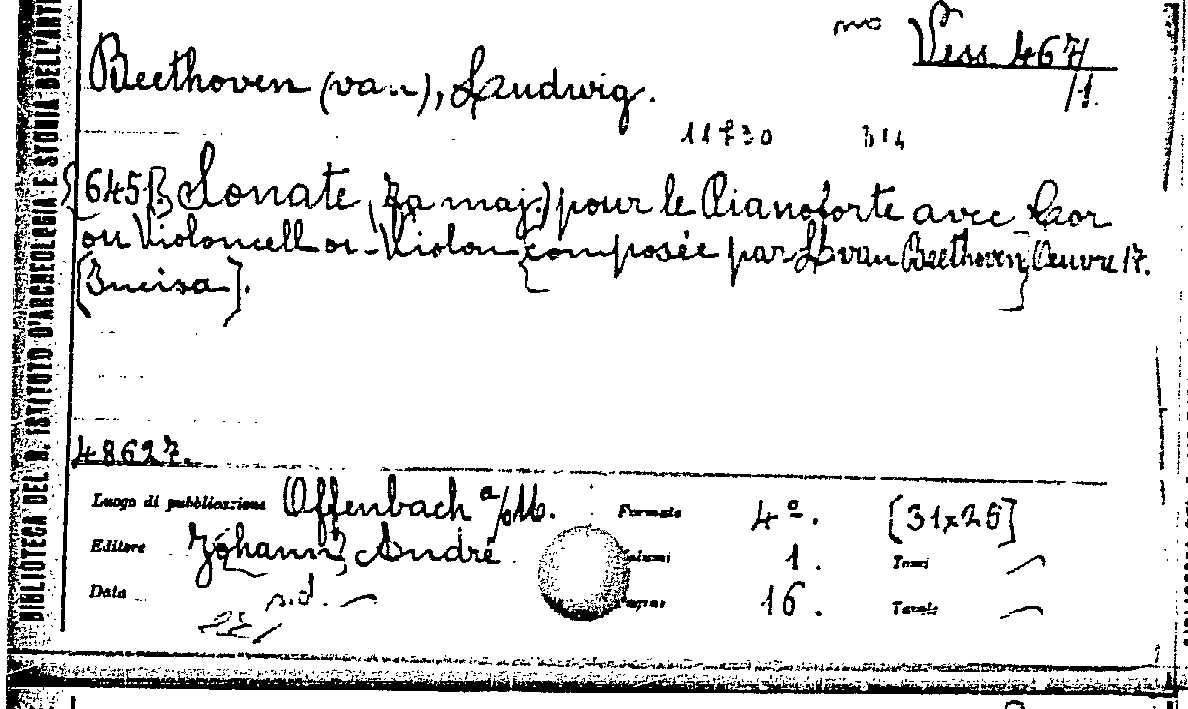 mo Vess 467/
/1.
Beethoven (van), Ludwig.
11730 314
[645] Sonate, (Fa maj.) pour le Pianoforte avec Cor
ou Violoncell ou Violon composée par L. van Beethoven Oeuvre 17.
[Incisa].
48627.
Luogo di pubblicazione Offenbach a/M. Formato 4º. [31x26]
Editore Johann André Volumi 1. Tomi
Data s.d. Pagine 16. Tavole
BIBLIOTECA DEL R. ISTITUTO D'ARCHEOLOGIA E STORIA DELL'ARTE